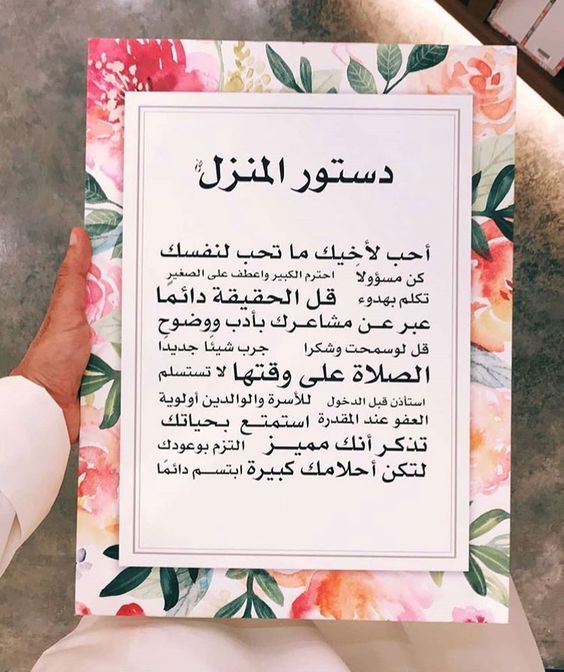 دستور المنزل
أحب لأخيك ما تحب لنفسك
كن مسؤولا احترم الكبير واعطف على الصغير
تكلم بهدوء قل الحقيقة دائما
عبر عن مشاعرك بأدب ووضوح
قل لوسمحت وشكرا جرب شيئا جديدا
الصلاة على وقتها لا تستسلم
استأذن قبل الدخول للأسرة والوالدين أولوية
العفو عند المقدرة استمتع بحياتك
تذكر أنك مميز التزم بوعودك
لتكن أحلامك كبيرة ابتسم دائما